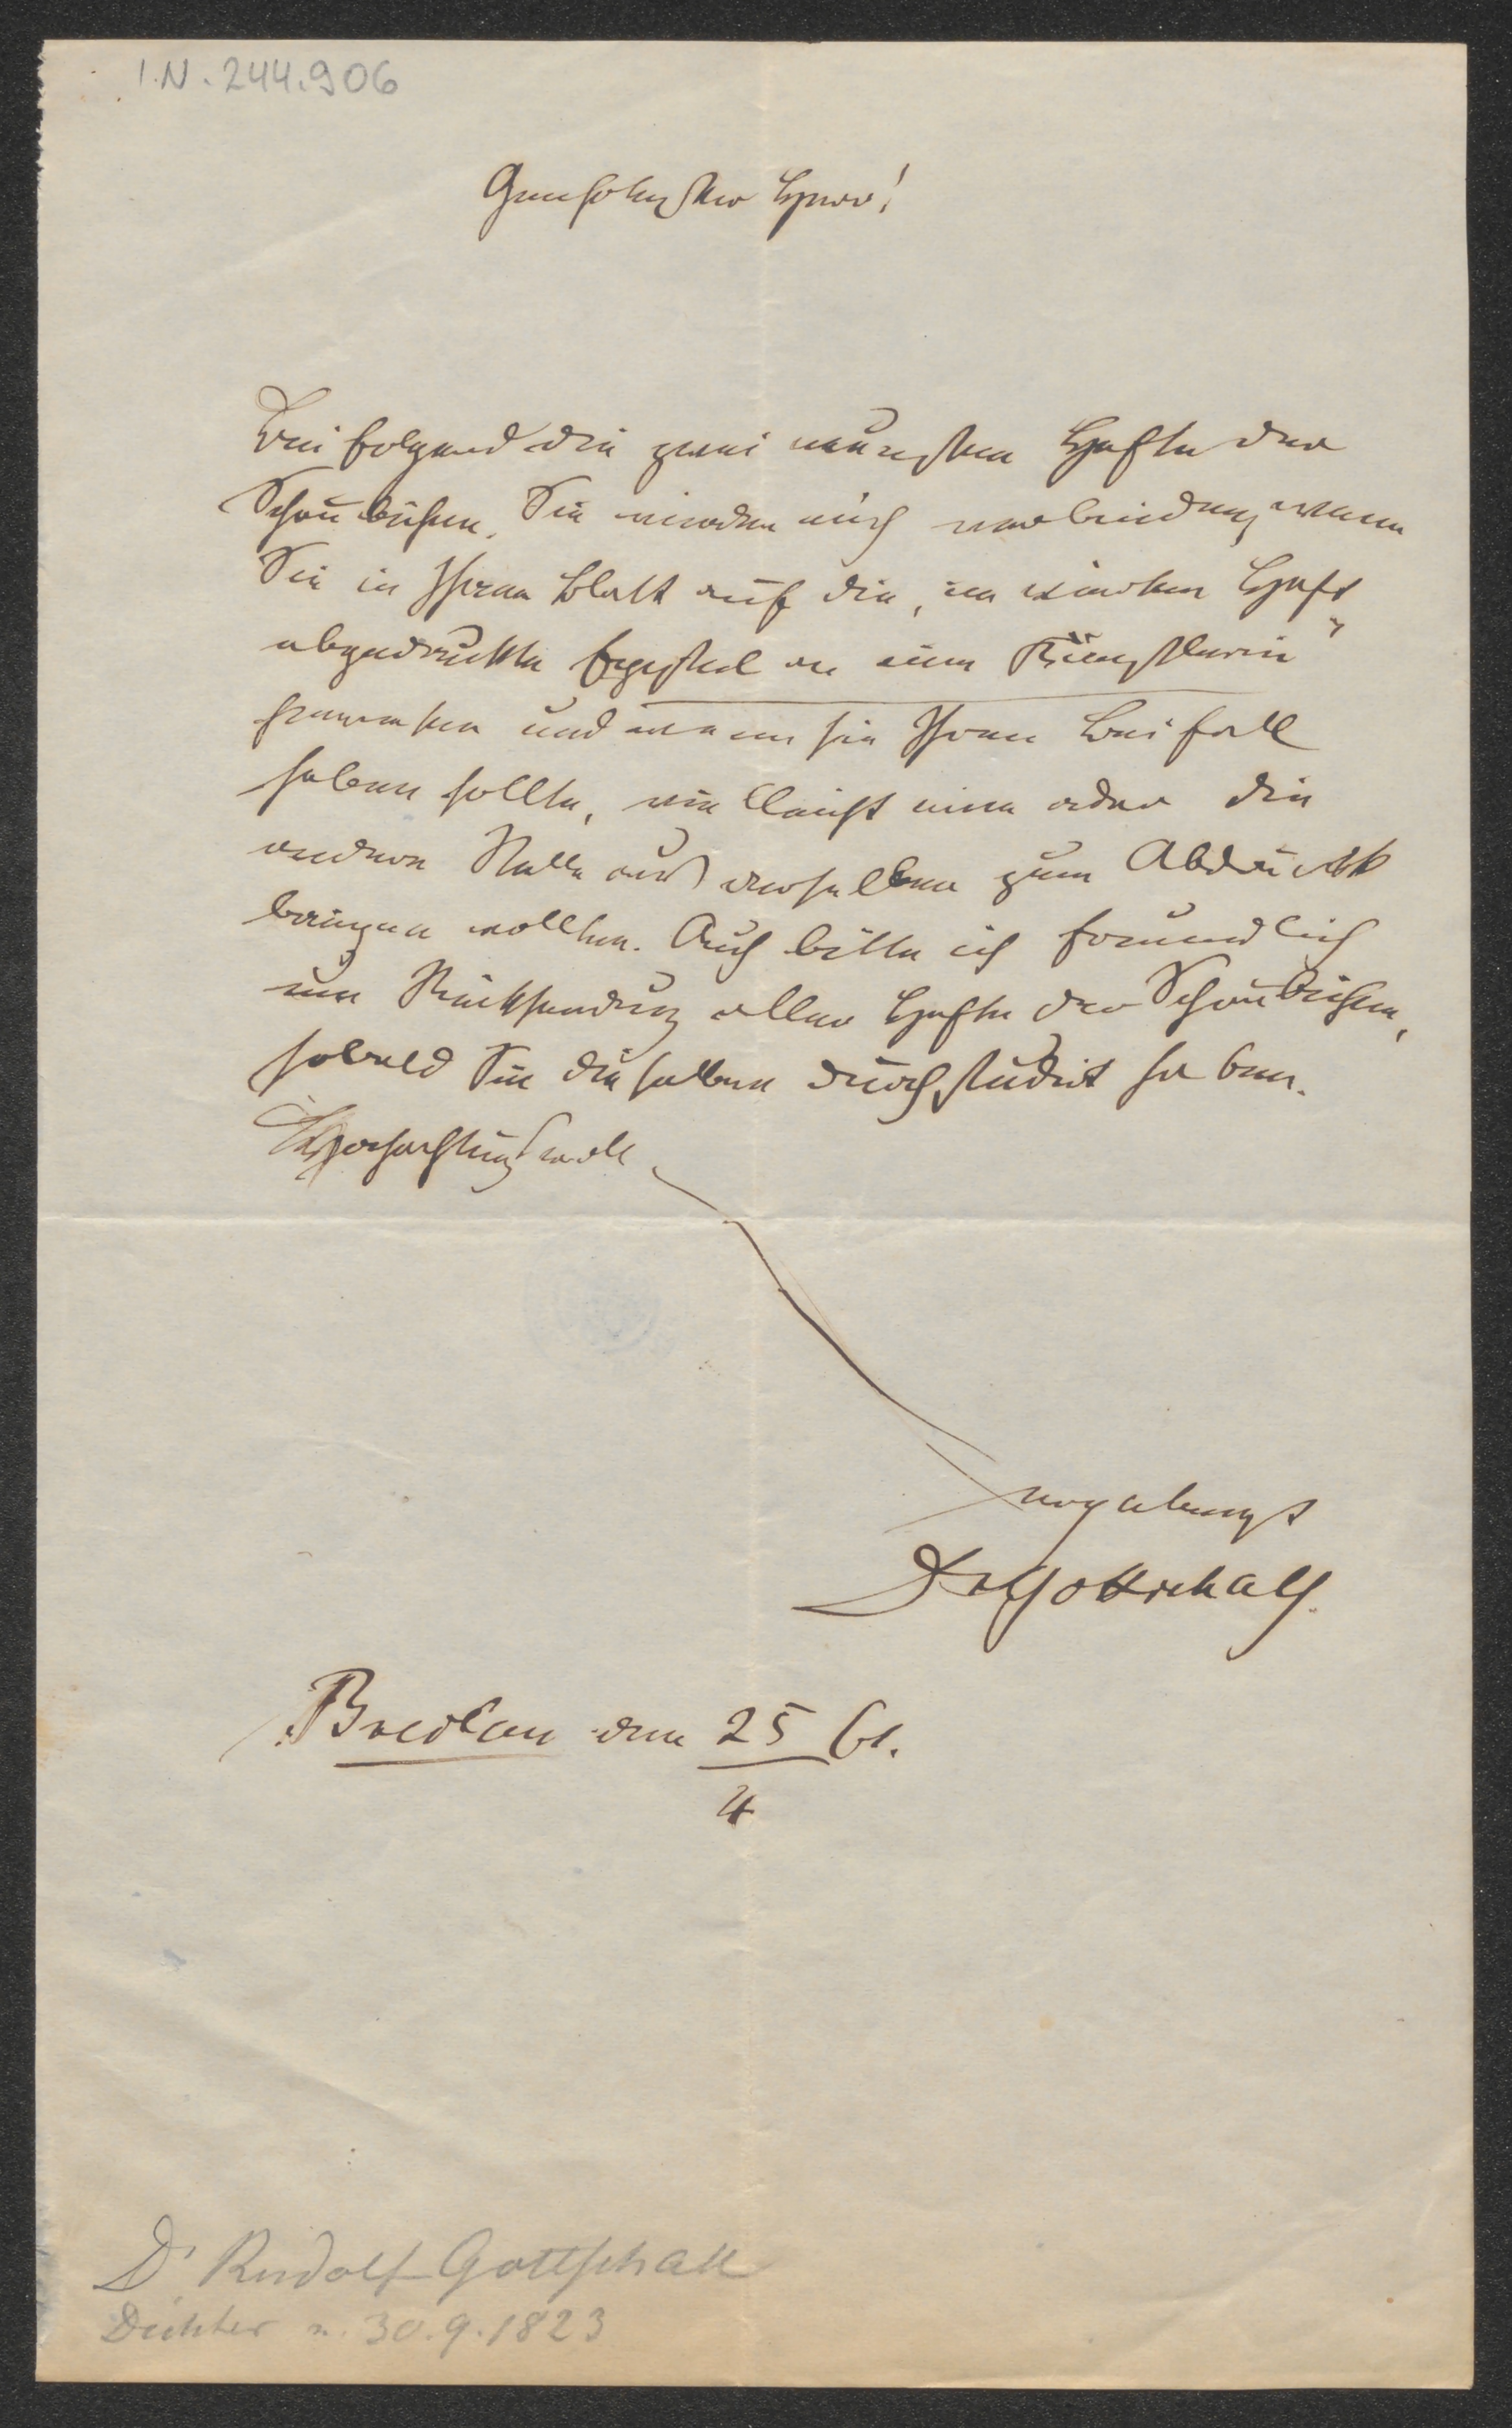 I.N. 244.906
Geehrtester Herr!
Beifolgend die zwei neuesten Hefte der
Schaubühne. Sie würden mich verbinden, wenn
Sie in Ihrem Blatt auf die, im vierten Heft
abgedruckte Epistel an eine Künstlerin"
hinweisen und wenn sie Ihren Beifall
haben sollte, vielleicht eine oder die
andere Stelle aus derselben zum Abdruck
bringen wollten. Auch bitte ich freundlich
um Rücksendung aller Hefte der Schaubühne,
sobald Sie dieselben durchstudirt haben.
Hochachtungsvoll
ergebenst
Dr Gottschall.
Breslau den 25/4 61.
Dr Rudolf Gottschall
Dichter n. 30.9.1823